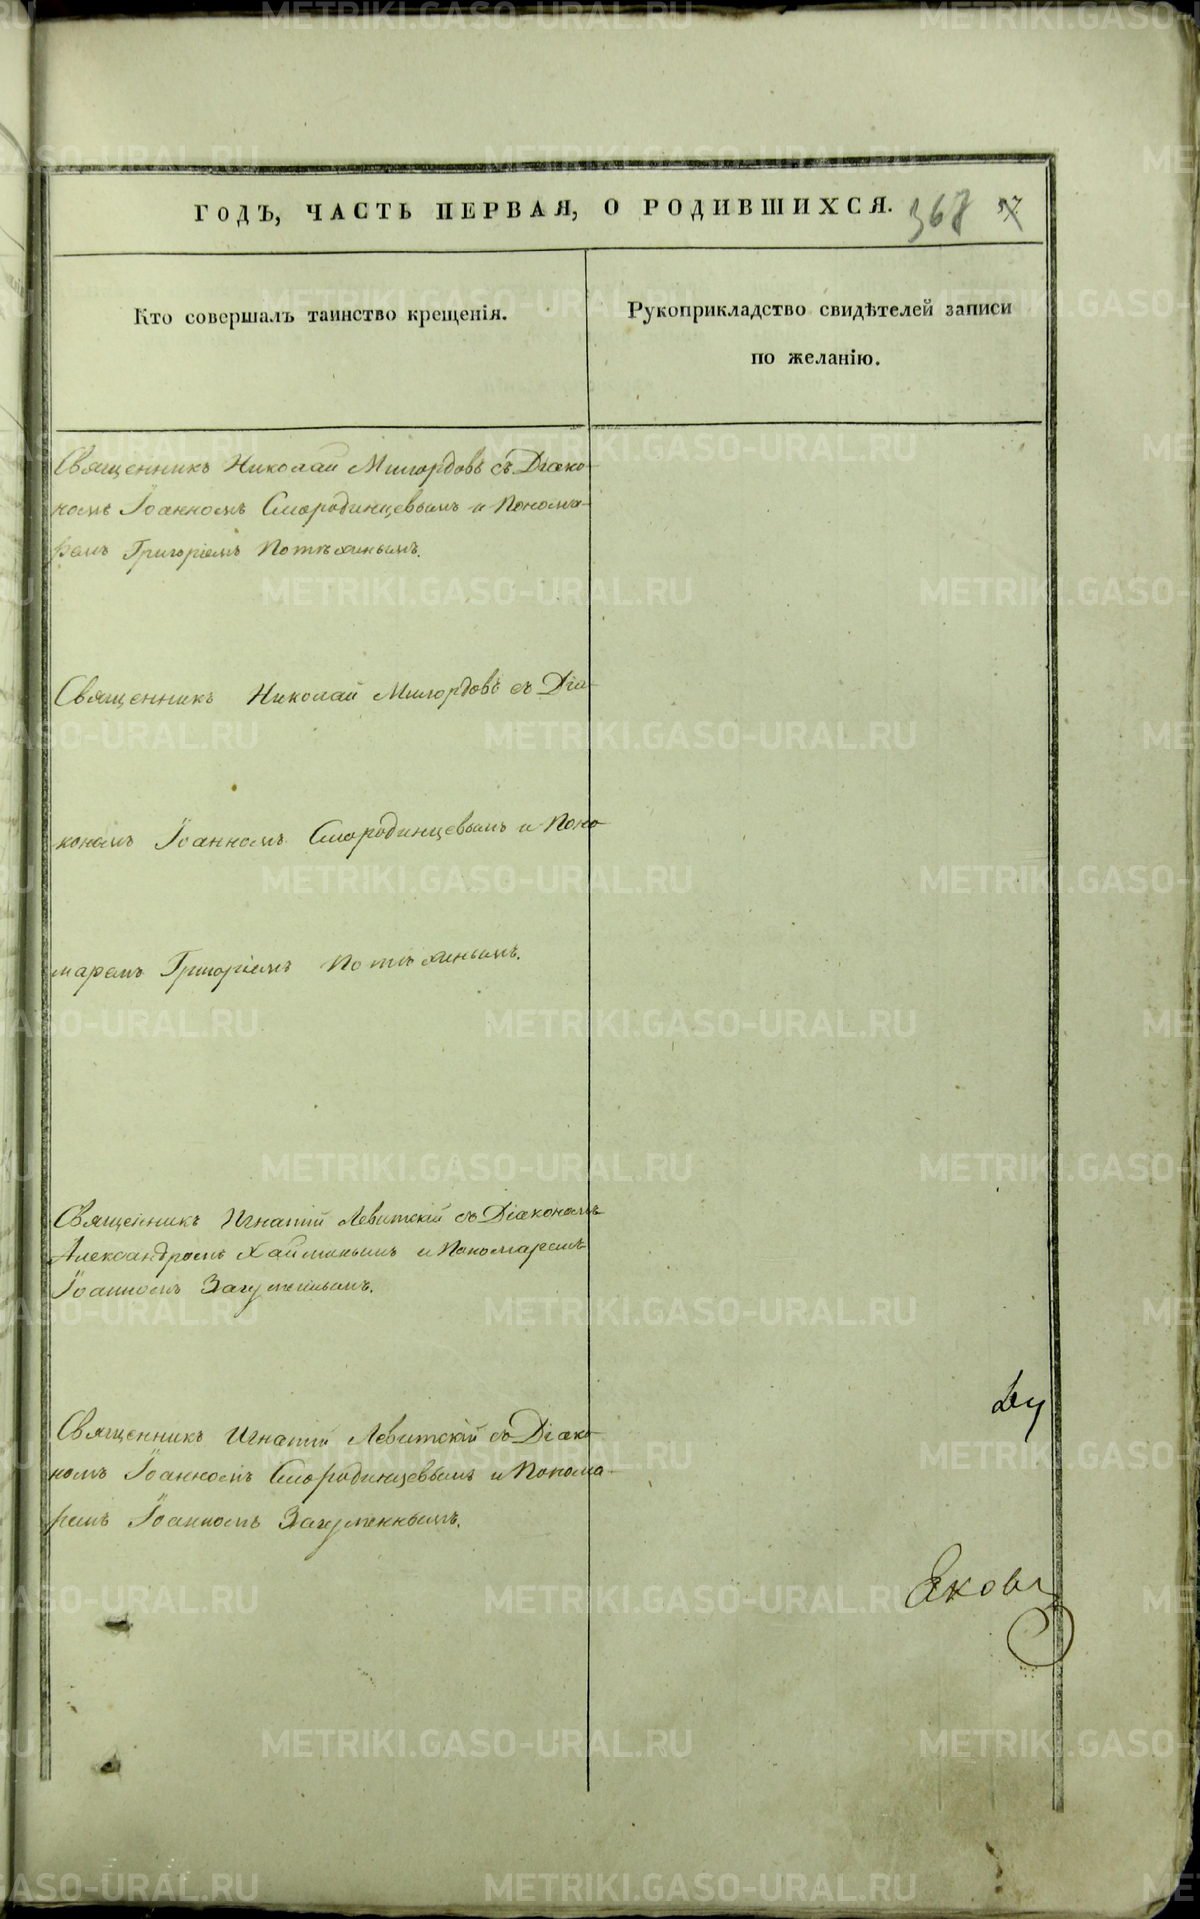 ГОДЪ, ЧАСТЬ ПЕРВАЯ, О РОДИВШИХСЯ. 368
Кто совершалъ таинство крещенія.
Рукоприкладство свидѣтелей записи
по желанію.
Священникъ Николай Милордовъ съ Діако-
номъ Іоанномъ Смородинцевымъ и Понома-
ремъ Григоріемъ Потѣхинымъ.
Священникъ Николай Милордовъ съ Діа-
кономъ Іоанномъ Смородинцевымъ и Поно-
маремъ Григоріемъ Потѣхинымъ.
Священникъ Игнатій Левитскій съ Діакономъ
Александромъ Хаймпнымъ и Пономаремъ
Іоанномъ Загуменнымъ.
Священникъ Игнатій Левитскій съ Діако-
номъ Іоанномъ Смородинцевымъ и Понома-
ремъ Іоанномъ Загуменнымъ.
METRIKI.GASO-URAL.RU